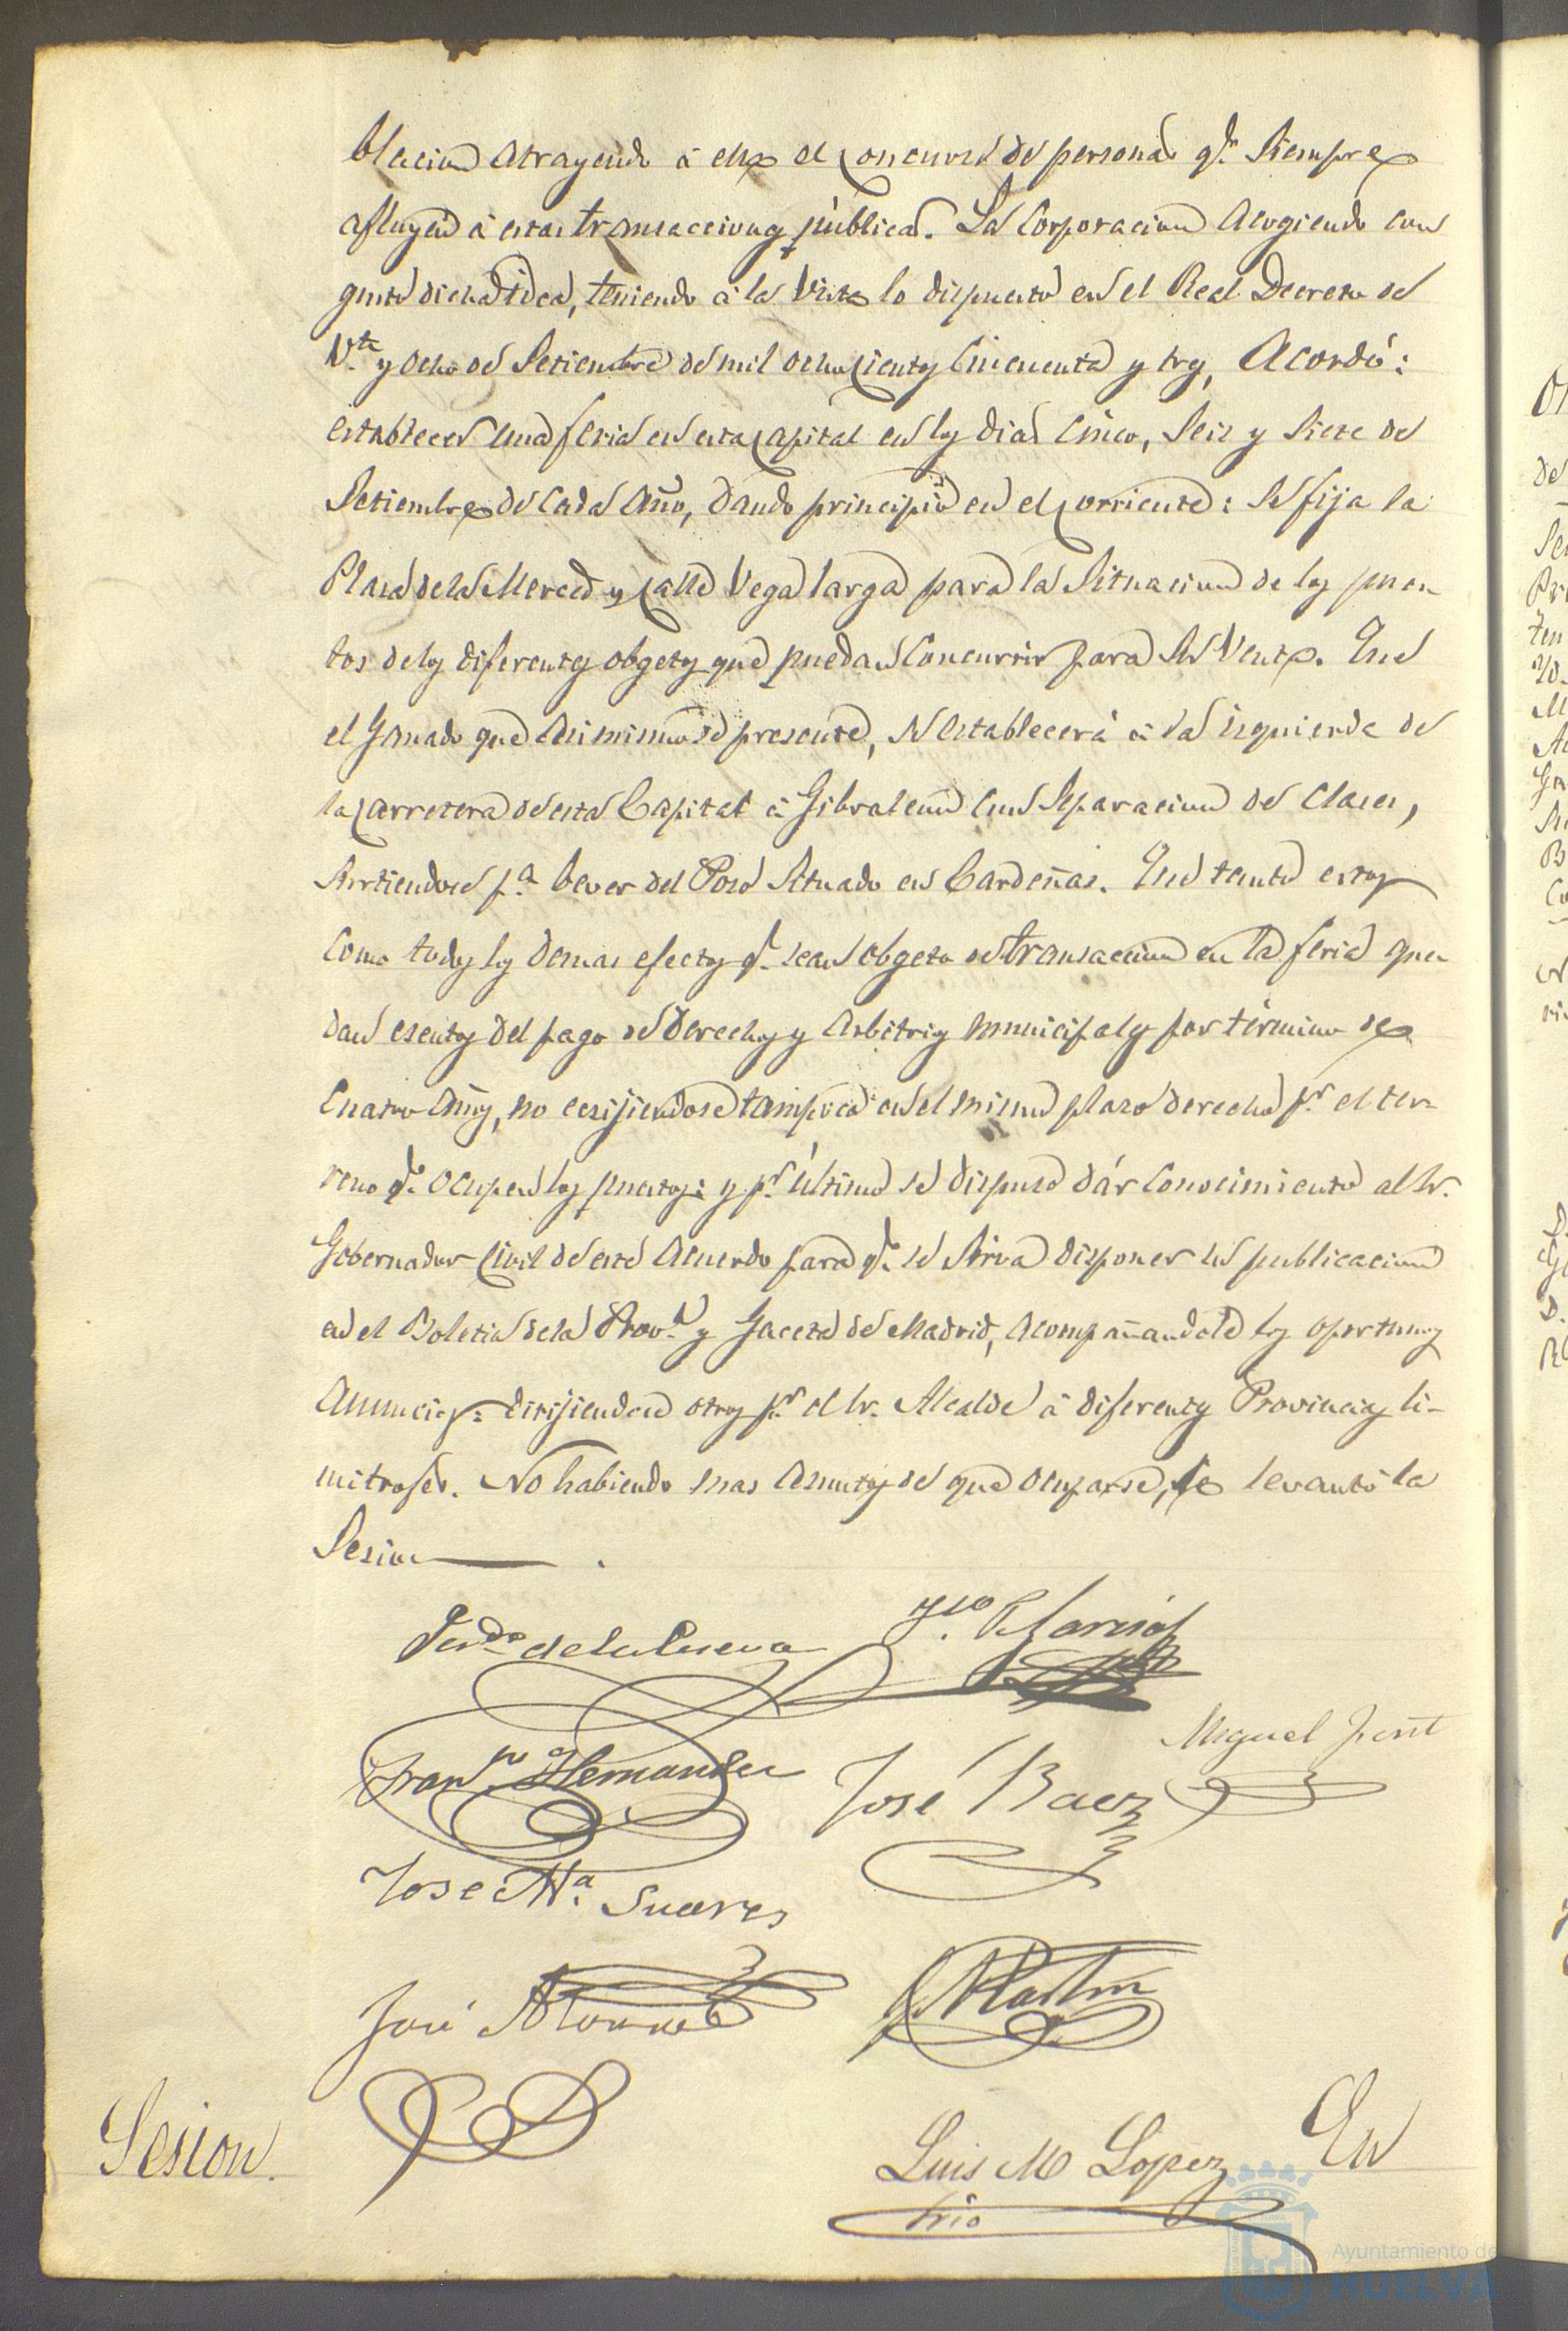 blacion atrayendo á ella el concurso de personas q.e siempre
afluyen á estas transacciones públicas. La Corporacion acogiendo con
gusto dicha idea, teniendo á la vista lo dispuesto en el Real Decreto de
V.te y ocho de Setiembre de mil ochocientos cincuenta y tres, Acordó:
establecer una feria en esta Capital en los dias cinco, seis y siete de
Setiembre de cada año, dando principio en el corriente: se fija la
Plaza de la Merced y calle Vega larga para la situacion de los pues-
tos de los diferentes obgetos que puedan concurrir para su venta. Que
el Ganado que asimismo se presente, se establecerá á la izquierda de
la carretera de esta Capital á Gibraleon con separacion de clases,
surtiendose p.a bever del Pozo situado en Cardeñas. Que tanto estos
como todos los demas efectos q.e sean obgeto de transaccion en la feria que-
dan esentos del pago de derechos y arbitrios municipales por término de
cuatro años, no ecsijiendose tampoco en el mismo plazo derecho p.r el ter-
reno q.e ocupen los puestos: y p.r último se dispuso dár conocimiento al Sr.
Gobernador Civil de este acuerdo para q.e se sirva disponer su publicacion
en el Boletin de la Prov.a y Gaceta de Madrid, acompañandole los oportunos
anuncios: dirijiendose otros p.r el Sr. Alcalde á diferentes Provincias li-
mitrofes. No habiendo mas asuntos de que ocuparse, se levantó la
Sesion
Fern.do de la Cueva
Fco. Garcia
Miguel Font
Fran.co Hernandez
José Baez
Jose M.a Suarez
José Alonso
Martin
Luis M Lopez
Srio
En
Sesion.
Ayuntamiento de
HUELVA